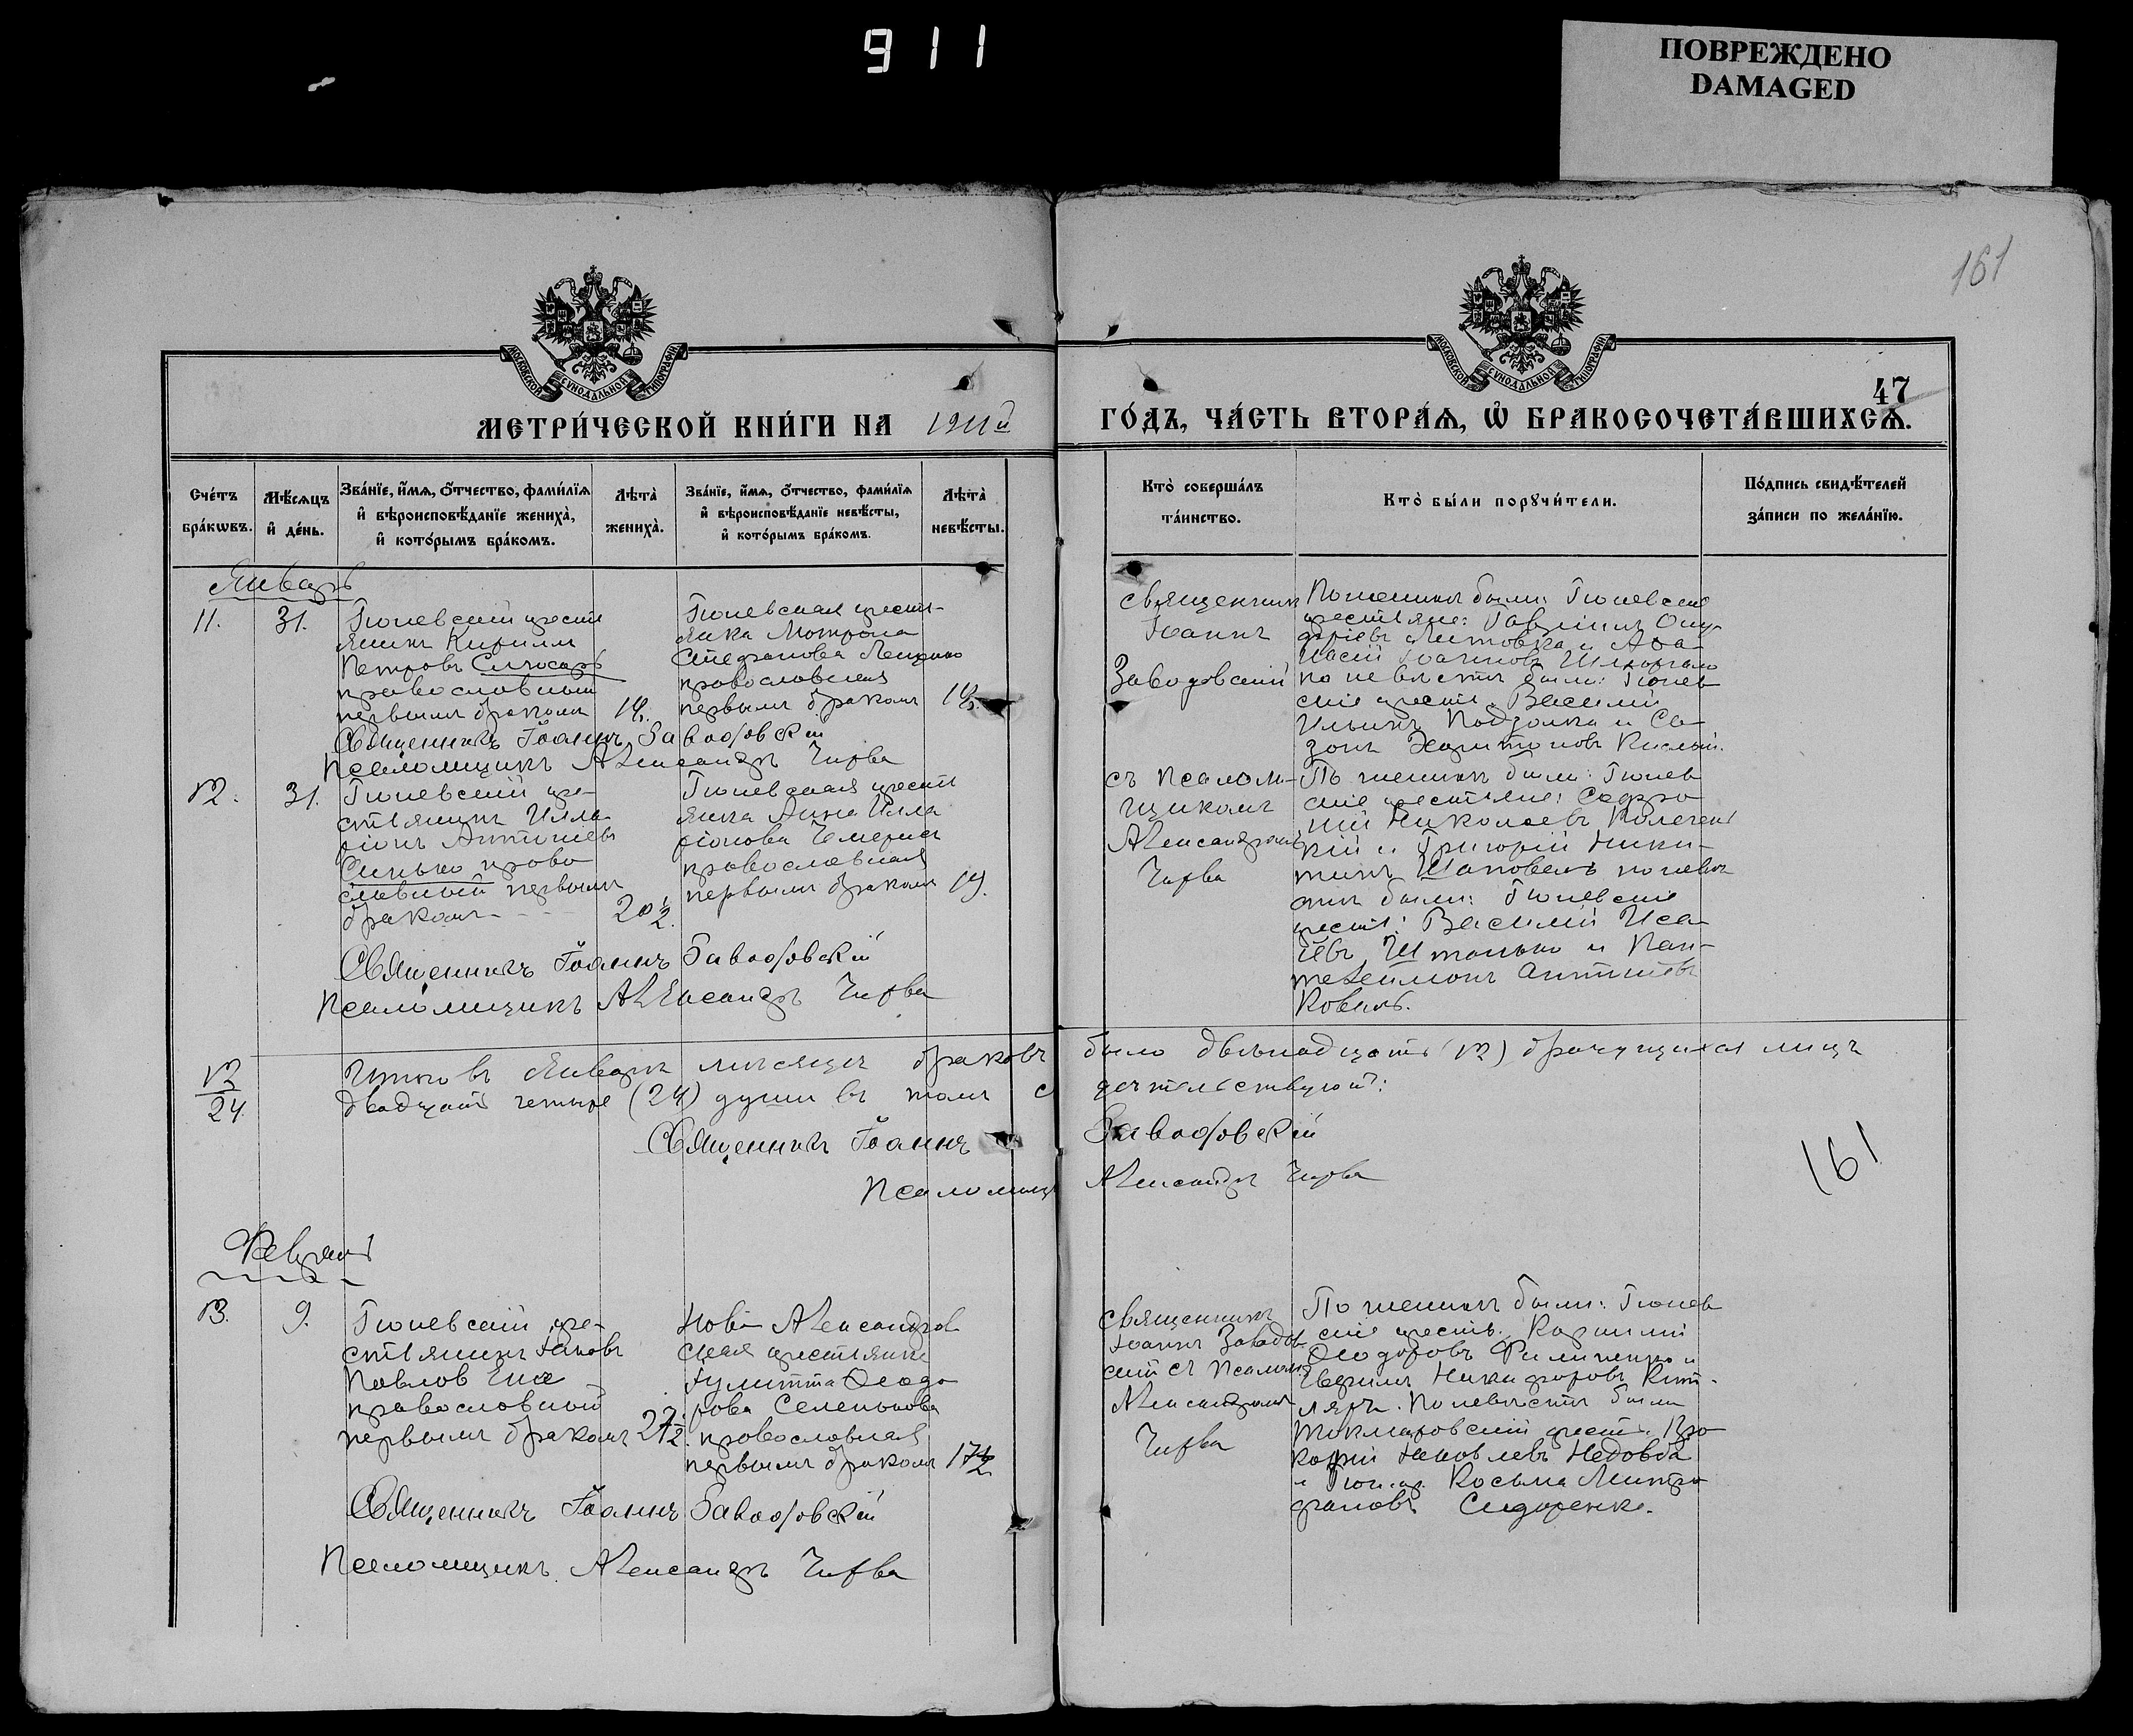 911
ПОВРЕЖДЕНО
DAMAGED
161
МОСКОВСКОЙ СѴНОДАЛЬНОЙ ТИПОГРАФІИ
МОСКОВСКОЙ СѴНОДАЛЬНОЙ ТИПОГРАФІИ
47
МЕТРИ́ЧЕСКОЙ КНИ́ГИ НА 1911й
ГО́ДЪ, ЧА́СТЬ ВТОРА́Ѧ, Ѽ БРАКОСОЧЕТА́ВШИХСѦ.
Сче́тъ
бра́кѡвъ.
Мѣ́сѧцъ
и҆ де́нь.
Зва́нїе, и҆́мѧ, ѻ҆́тчество, фами́лїѧ
и҆ вѣроисповѣ́данїе жениха̀,
и҆ кото́рымъ бра́комъ.
Лѣта̀
жениха̀.
Зва́нїе, и҆́мѧ, ѻ҆́тчество, фами́лїѧ
и҆ вѣроисповѣ́данїе невѣ́сты,
и҆ кото́рымъ бра́комъ.
Лѣта̀
невѣ́сты.
Кто̀ соверша́лъ
та́инство.
Кто̀ бы́ли порꙋчи́тели.
По́дпись свидѣ́телей
за́писи по жела́нїю.
Январь
11.
31.
Гюневскій крестья
янинъ Кириллъ
Петровъ
православный
первымъ бракомъ
Гюневская крестья-
янка Мотрона
Стефанова
православная
первымъ бракомъ
Священникъ
Іоаннъ
Заводовскій
По женихѣ были: Гюневскіе
крестьяне: Гавріилъ
и Афа-
насій Іоанновъ
по невѣстѣ были: Гюнев
скіе крест. Василій
Ильинъ Подзолка и Са-
зонъ Харитоновъ Кислый.
Священникъ Іоаннъ Заводовскій
Псаломщикъ Александръ Чирва
12.
31.
Гюневскій кре-
стьянинъ Илла-
ріонъ Антоніевъ
Синько право
славный первымъ
бракомъ
20½.
Гюневская крестья
янка Анна Илла
ріонова Чемерисъ
православная
первымъ бракомъ
19.
съ псалом-
щикомъ
Александромъ
Чирва
По женихѣ были: Гюнев
скіе крестьяне: Софро
ній Николаевъ
и Григорій Ники-
тинъ Шаповалъ по невѣс
тѣ были: Гюневскіе
крест: Василій Иса-
іевъ Штанько и Пан-
телеймонъ Антоніевъ
Коваль.
Священникъ Іоаннъ Заводовскій
Псаломщикъ Александръ Чирва
12
24
Итого въ Январѣ мѣсяцѣ браковъ было двѣнадцать (12) брачущихся лицъ
двадцать четыре (24) души въ томъ с дѣтельствуютъ:
Священникъ Іоаннъ Заводовскій
Псаломщ Александръ Чирва
161
Февраль
13.
9.
Гюневскій кре-
стьянинъ Іаковъ
Павловъ
православный
первымъ бракомъ
27½.
Ново-Александров
ская крестьянка
Іулитта Ѳеодо
рова Селенькова
православная
первымъ бракомъ
17½
Священникъ
Іоаннъ Заводов-
скій съ псалом.
Александромъ
Чирва
По женихѣ были: Гюнев
скіе крест. Корнилій
Ѳеодоровъ Филипенко и
Никифоровъ Кит-
ляръ. По невѣстѣ были
Токмаровскій крест. Про
кофій Іаковлевъ Недовба
и Гюнев. Косьма Митро
фановъ Сидоренко.
Священникъ Іоаннъ Заводовскій
Псаломщикъ Александръ Чирва